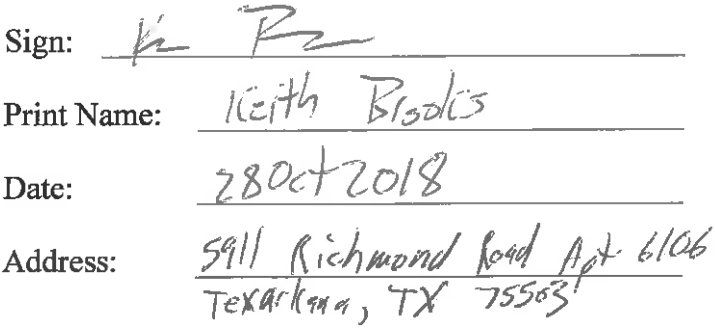 Sign:
Print Name: Keith Brooks
Date: 28 Oct 2018
Address: 5911 Richmond Road Apt 6106
Texarkana, TX 75503